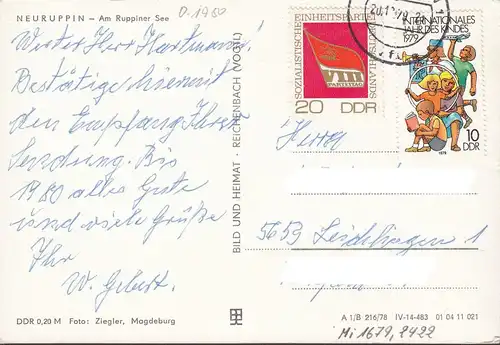 NEURUPPIN – Am Ruppiner See
Werter Herr Hartmann,
Bestätige hiermit
den Empfang Ihrer
Sendung. Bis
1980 alles Gute
und viele Grüße
Ihr
W. Gebert.
DDR 0,20 M Foto: Ziegler, Magdeburg
BILD UND HEIMAT · REICHENBACH (VOGTL)
SOZIALISTISCHE EINHEITSPARTEI DEUTSCHLANDS
VIII
PARTEITAG
20 DDR
INTERNATIONALES
JAHR DES KINDES
1979
10
DDR
1979
Herrn
5653 Leichlingen 1
A 1/B 216/78 IV-14-483 01 04 11 021
Mi 1679, 2422